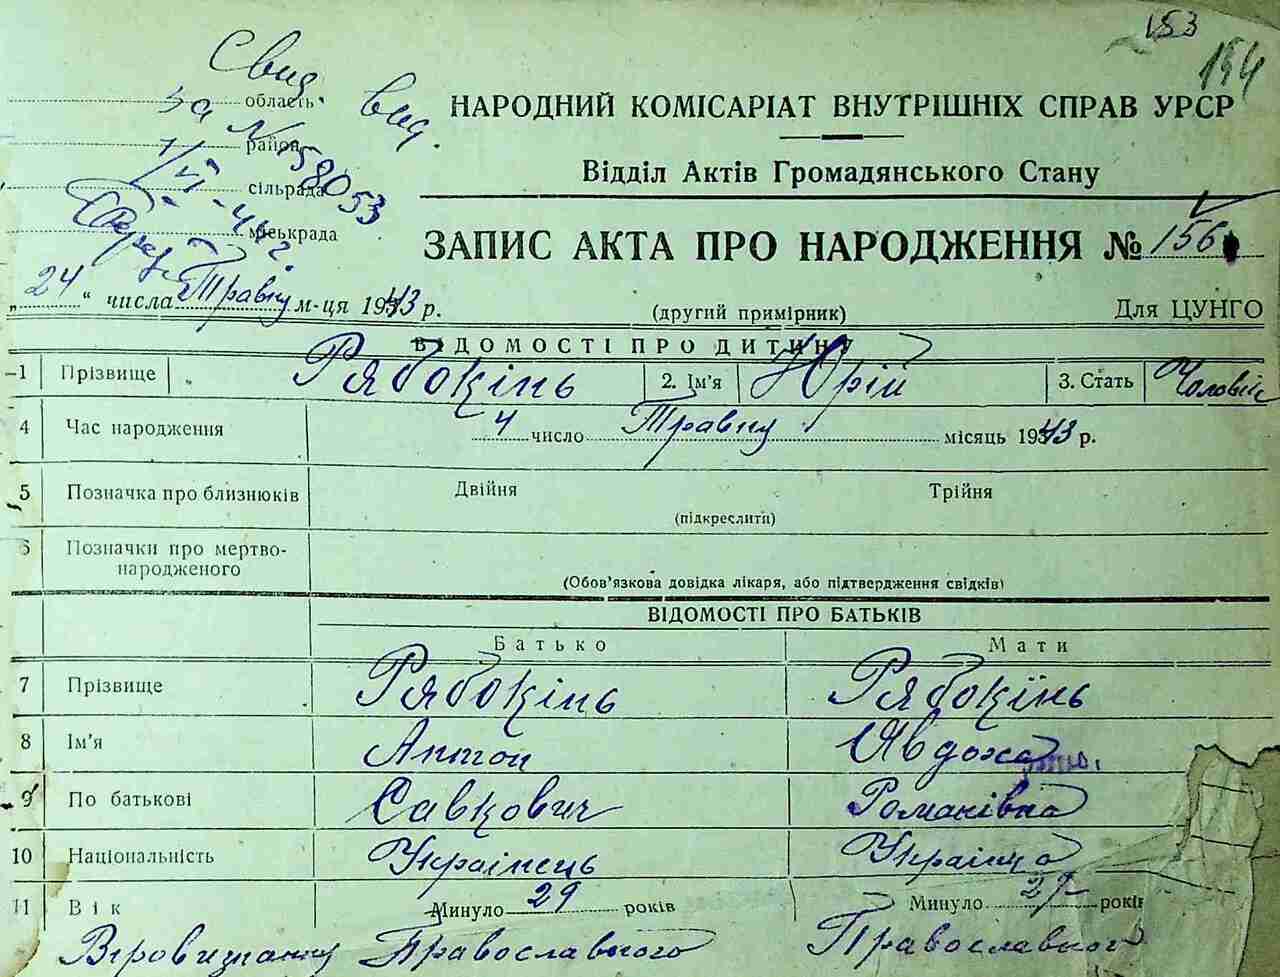 153
154
Свид. вид.
область
За № 58053
район
1/VI - 44 г.
сільрада
міськрада
НАРОДНИЙ КОМІСАРІАТ ВНУТРІШНІХ СПРАВ УРСР
Відділ Актів Громадянського Стану
ЗАПИС АКТА ПРО НАРОДЖЕННЯ № 156
„24“ числа Травня м-ця 1943 р.
(другий примірник) Для ЦУНГО
ВІДОМОСТІ ПРО ДИТИНУ
1 Прізвище Рябокінь 2. Ім'я Юрій 3. Стать Чоловіч
4 Час народження 4 число Травня місяць 1943 р.
5 Позначка про близнюків Двійня Трійня
(підкреслити)
6 Позначки про мертво-
народженого
(Обов'язкова довідка лікаря, або підтвердження свідків)
ВІДОМОСТІ ПРО БАТЬКІВ
Батько Мати
7 Прізвище Рябокінь Рябокінь
8 Ім'я Антон Явдоха
9 По батькові Савкович Романівна
10 Національність Українець Українка
11 Вік Минуло 29 років Минуло 29 років
Віровизнання Православного Православного